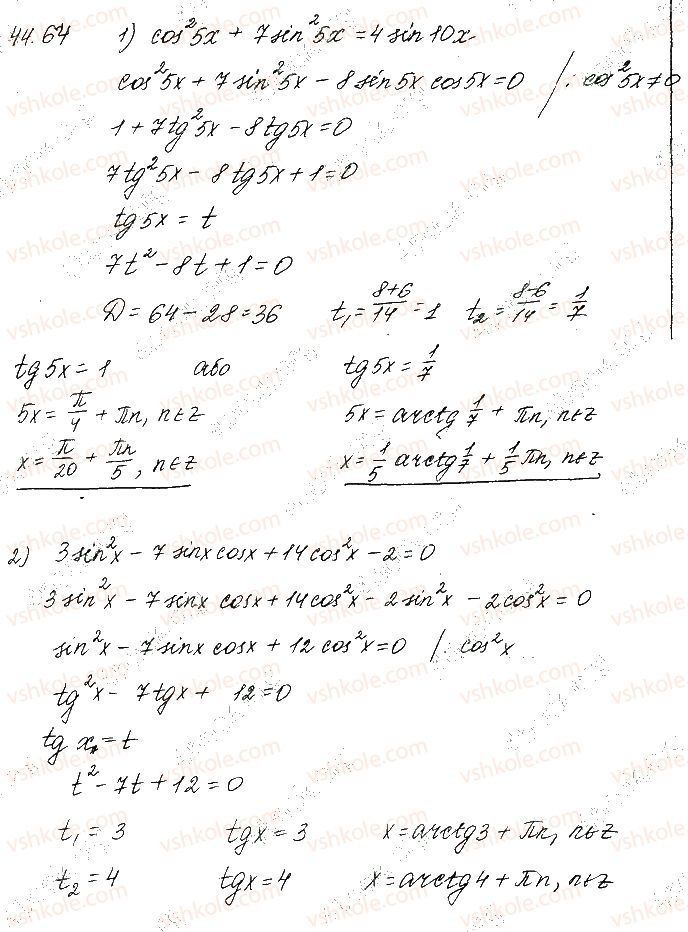 44.64 1) cos²5x + 7sin²5x = 4 sin10x
cos²5x + 7sin²5x − 8sin5x cos5x = 0 / : cos²5x ≠ 0
1 + 7tg²5x − 8tg5x = 0
7tg²5x − 8tg5x + 1 = 0
tg5x = t
7t² − 8t + 1 = 0
D = 64 − 28 = 36 t₁ = (8+6)/14 = 1 t₂ = (8−6)/14 = 1/7
tg5x = 1 або tg5x = 1/7
5x = π/4 + πn, n∈z 5x = arctg 1/7 + πn, n∈z
x = π/20 + πn/5, n∈z x = 1/5 arctg 1/7 + 1/5 πn, n∈z
2) 3sin²x − 7sinx cosx + 14cos²x − 2 = 0
3sin²x − 7sinx cosx + 14cos²x − 2sin²x − 2cos²x = 0
sin²x − 7sinx cosx + 12cos²x = 0 / : cos²x
tg²x − 7tgx + 12 = 0
tg x = t
t² − 7t + 12 = 0
t₁ = 3 tgx = 3 x = arctg3 + πn, n∈z
t₂ = 4 tgx = 4 x = arctg4 + πn, n∈z